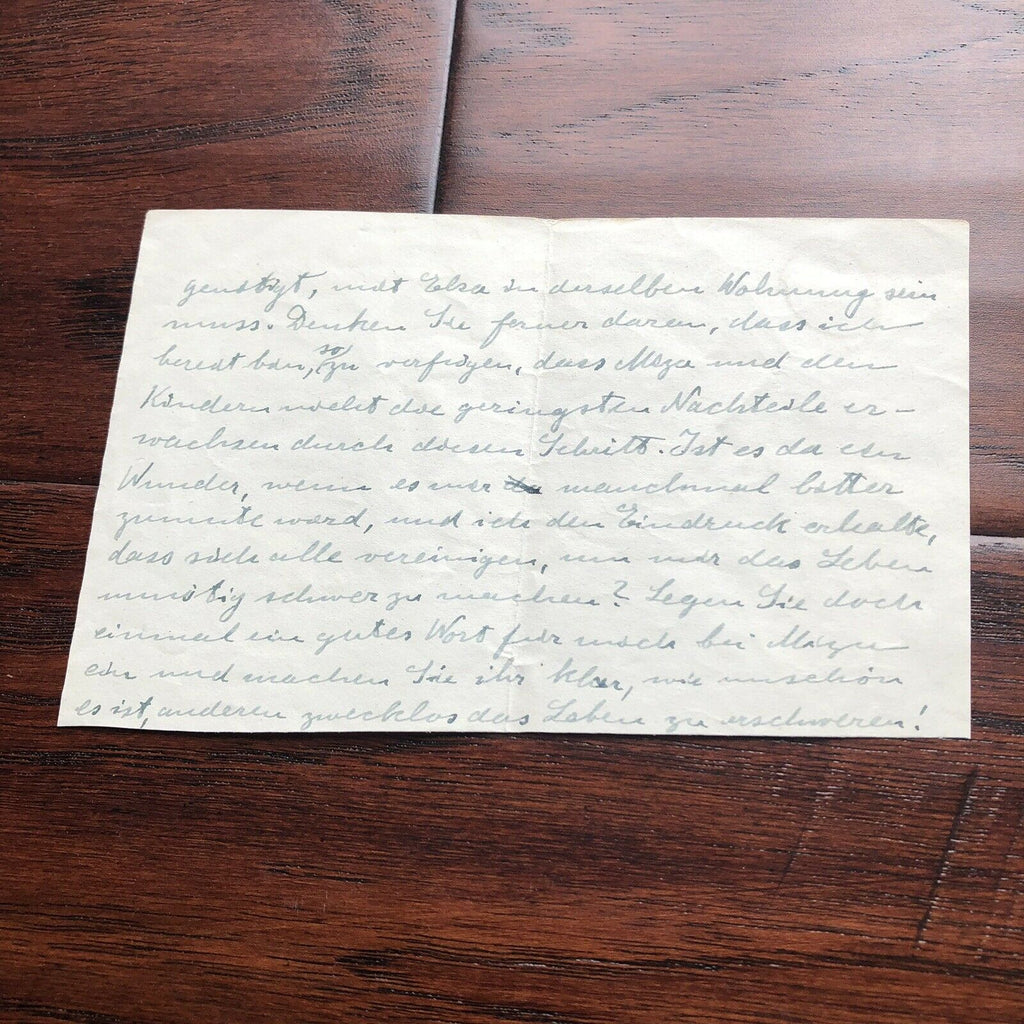 genötigt, mit Elsa in derselben Wohnung sein
muss. Denken Sie ferner daran, dass ich
bereit bin, so zu verfügen, dass Miza und den
Kindern nicht die geringsten Nachteile er-
wachsen durch diesen Schritt. Ist es da ein
Wunder, wenn es mir manchmal bitter
zumute wird, und ich den Eindruck erhalte,
dass sich alle vereinigen, um mir das Leben
unnötig schwer zu machen? Legen Sie doch
einmal ein gutes Wort für mich bei Mizu
ein und machen Sie ihr klar, wie unschön
es ist, anderen zwecklos das Leben zu erschweren!